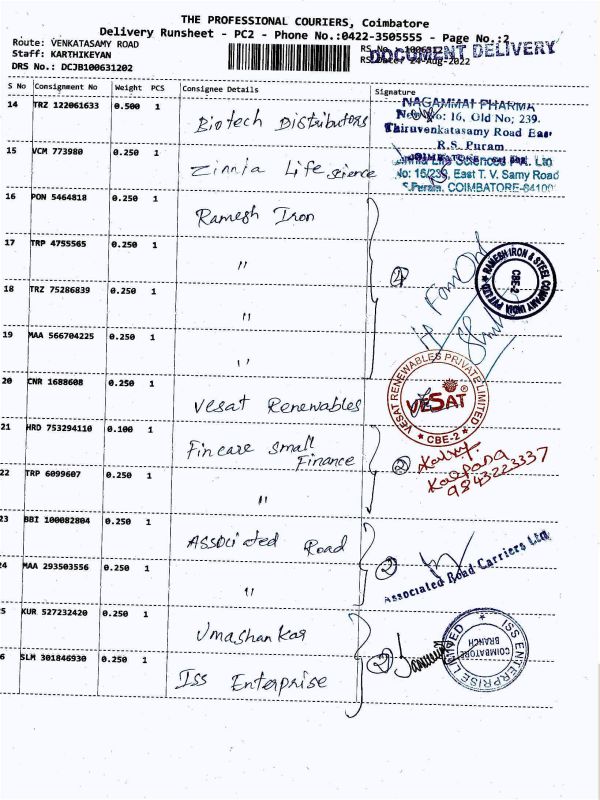 THE PROFESSIONAL COURIERS, Coimbatore
Delivery Runsheet - PC2 - Phone No.:0422-3505555 - Page No.:2
Route: VENKATASAMY ROAD
Staff: KARTHIKEYAN
DRS No.: DCJB100631202
DOCUMENT DELIVERY
24-Aug-2022
S No Consignment No Weight PCS Consignee Details Signature
14 TRZ 122061633 0.500 1 Biotech Distributors
NAGAMMAI PHARMA
New No: 16, Old No; 239.
Thiruvenkatasamy Road East
R.S. Puram
15 VCM 773980 0.250 1 Zinnia Life science
Life Sciences Pvt. Ltd
No: 16/239, East T. V. Samy Road
COIMBATORE-64100
16 PON 5464818 0.250 1 Ramesh Iron
17 TRP 4755565 0.250 1 "
RAMESH IRON & STEEL COMPANY INDIA PVT LTD
CBE-2
18 TRZ 75286839 0.250 1 "
19 MAA 566704225 0.250 1 "
20 CNR 1688608 0.250 1 Vesat Renewables
VESAT RENEWABLES PRIVATE LIMITED
VESAT
CBE-2
21 HRD 753294110 0.100 1 Fincare small
Finance
2
Kalpana
9843223337
22 TRP 6099607 0.250 1 "
23 BBI 100082804 0.250 1 Associated Road
2
Associated Road Carriers Ltd
24 MAA 293503556 0.250 1 "
5 KUR 527232420 0.250 1 Umashankar
6 SLM 301846930 0.250 1 Iss Enterprise
2
ISS ENTERPRISE LIMITED
COIMBATORE
BRANCH